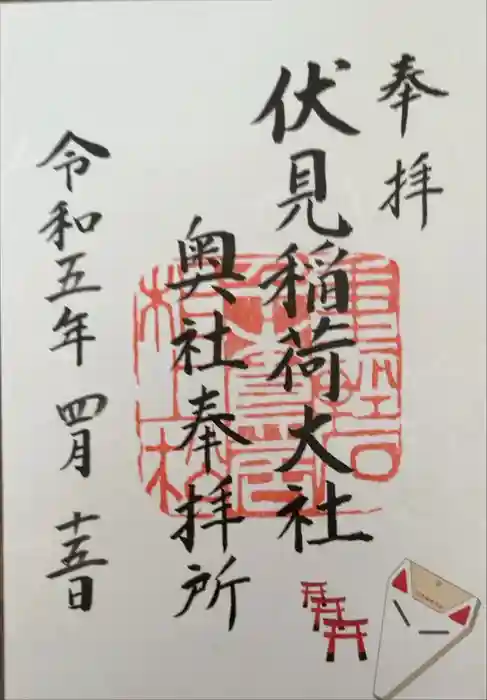 奉拝
伏見稲荷大社
奥社奉拝所
令和五年 四月 十五日